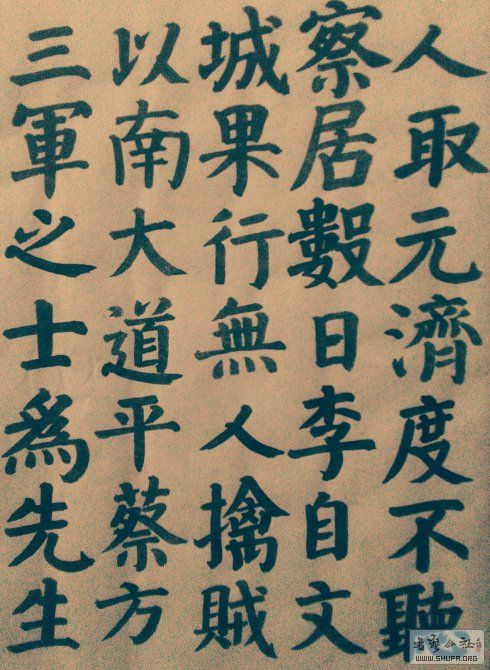 人取元濟度不聽
察居數日李自文
城果行無人擒賊
以南大道平蔡方
三軍之士為先生
書藝公社
WWW.SHUFA.ORG